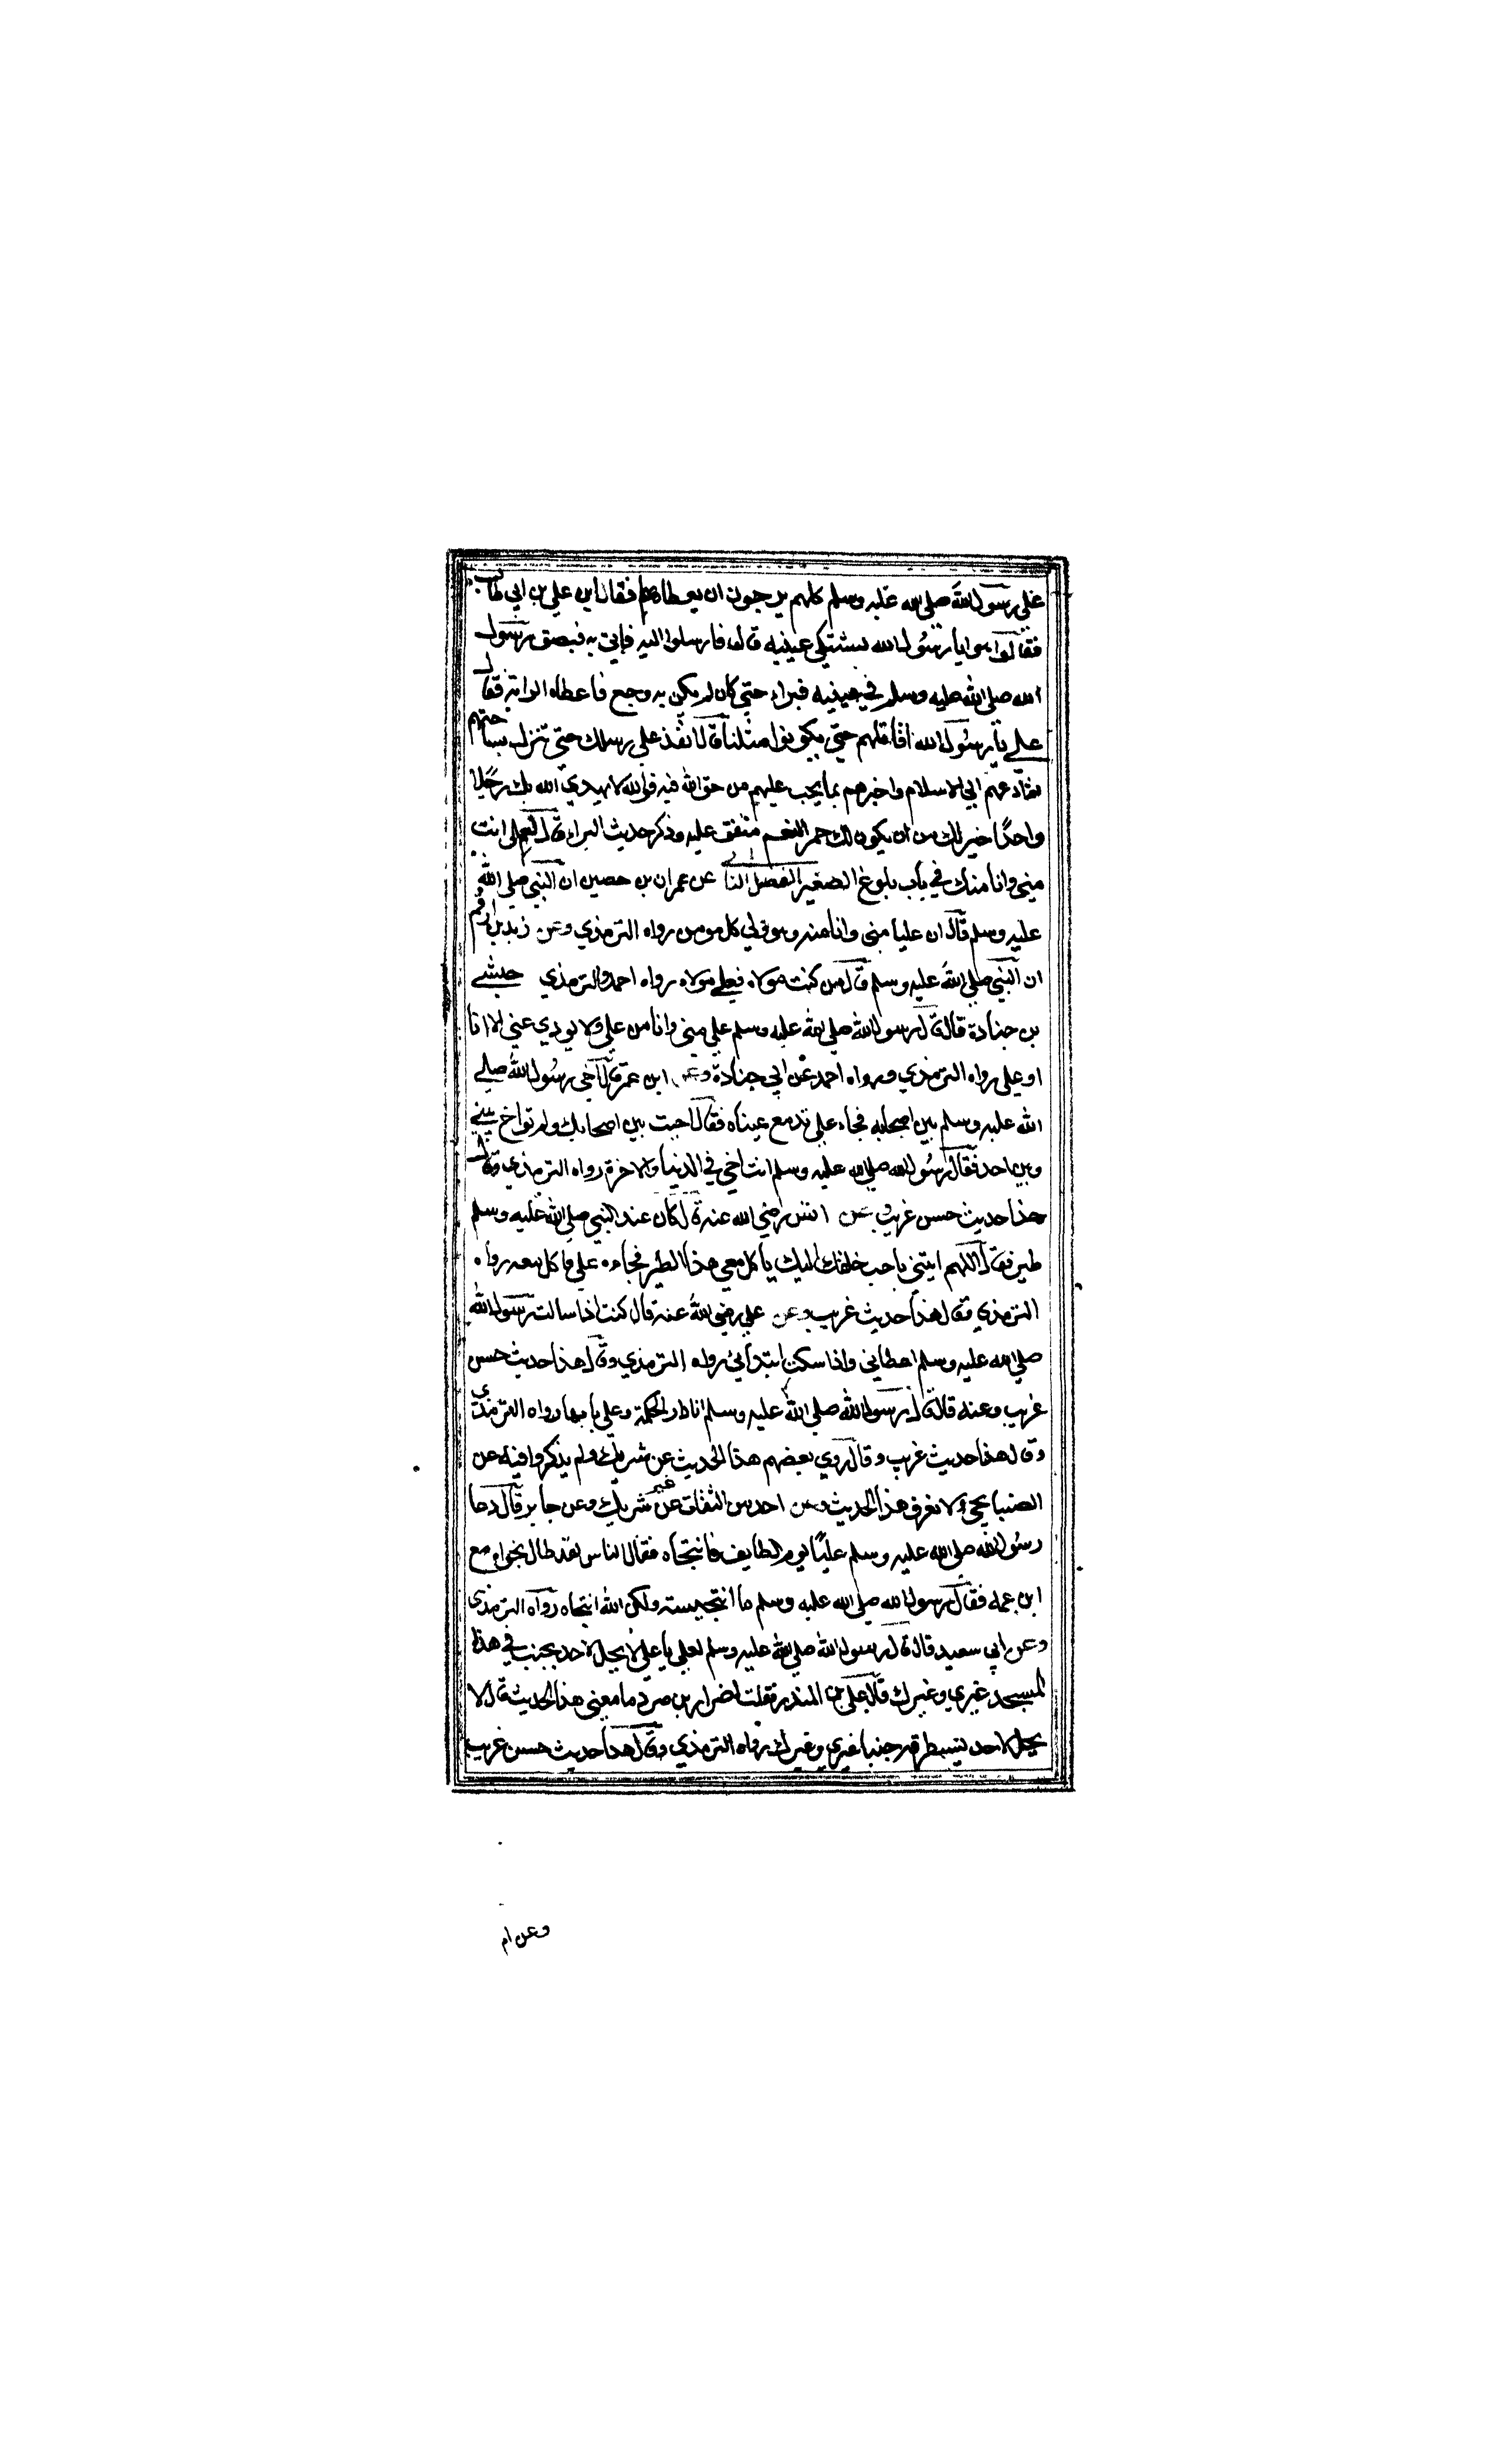 علي رسول الله صلي الله عليه وسلم كلهم يرجون ان يعطاها فقال اين علي بن ابي طالب
فقالوا هو يا رسول الله يشتكي عينيه قال فارسلوا اليه فاتي به فبصق رسول
الله صلي الله عليه وسلم في عينيه فبراء حتي كان لم يكن به وجع فاعطاه الراية فقال
علي يا رسول الله اقاتلهم حتي يكونوا مثلنا قال انفذ علي رسلك حتي تنزل بساحتهم
ثم ادعهم الي الاسلام واخبرهم بما يجب عليهم من حق الله فيه فوالله لا يهدي الله بك رجلا
واحدًا خير لك من ان يكون لك حمر النعم متفق عليه وذكر حديث البراء قال لعلي انت
مني وانا منك في باب بلوغ الصغير الفصل الثاني عن عمران بن حصين ان النبي صلي الله
عليه وسلم قال ان عليا مني وانا منه وهو ولي كل مومن رواه الترمذي وعن زيد بن ارقم
ان النبي صلي الله عليه وسلم قال من كنت مولاه فعلي مولاه رواه احمد والترمذي حبشي
بن جنادة قال قال رسول الله صلي الله عليه وسلم علي مني وانا من علي ولا يودي عني الا انا
او علي رواه الترمذي ورواه احمد عن ابي جنادة وعن ابن عمر قال آخي رسول الله صلي
الله عليه وسلم بين اصحابه فجاء علي تدمع عيناه فقال اخيت بين اصحابك ولم تواخ بيني
وبين احد فقال رسول الله صلي الله عليه وسلم انت اخي في الدنيا والاخرة رواه الترمذي وقال
هذا حديث حسن غريب وعن انس رضي الله عنه قال كان عند النبي صلي الله عليه وسلم
طير فقال اللهم ايتني باحب خلقك اليك ياكل معي هذا الطير فجاءه علي فاكل معه رواه
الترمذي وقال هذا حديث غريب وعن علي رضي الله عنه قال كنت اذا سالت رسول الله
صلي الله عليه وسلم اعطاني واذا سكت ابتداني رواه الترمذي وقال هذا حديث حسن
غريب وعنه قال قال رسول الله صلي الله عليه وسلم انا دار الحكمة وعلي بابها رواه الترمذي
وقال هذا حديث غريب وقال روي بعضهم هذا الحديث عن شريك ولم يذكروا فيه عن
الصنابحي ولا نعرف هذا الحديث وعن احد من الثقات عن غير شريك وعن جابر قال دعا
رسول الله صلي الله عليه وسلم عليًا يوم الطايف فانتجاه فقال الناس لقد طال نجواه مع
ابن عمه فقال رسول الله صلي الله عليه وسلم ما انتجيته ولكن الله انتجاه رواه الترمذي
وعن ابي سعيد قال قال رسول الله صلي الله عليه وسلم لعلي يا علي لا يحل لاحد يجنب في هذا
المسجد غيري وغيرك قال علي بن المنذر فقلت لضرار بن صرد ما معني هذا الحديث قال لا
يحل لاحد يستطرقه جنبا غيري وغيرك رواه الترمذي وقال هذا حديث حسن غريب
وعن ام